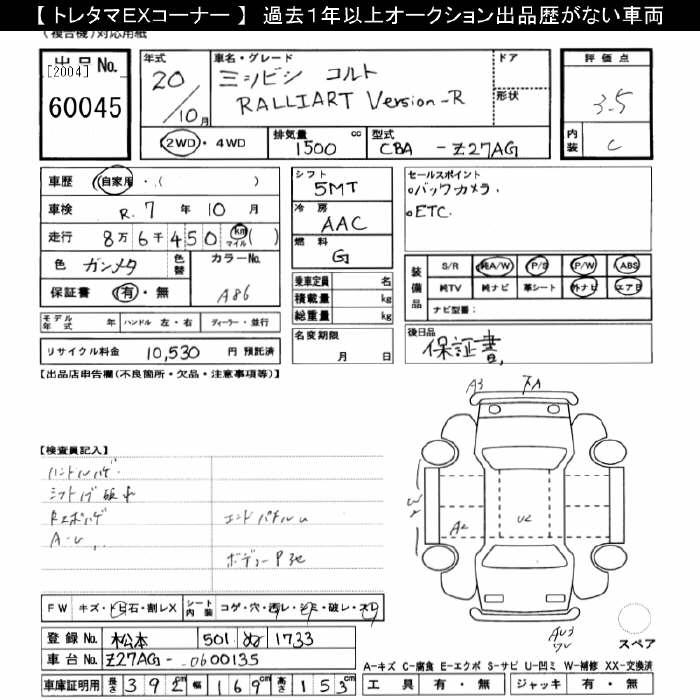 【 トレタマEXコーナー 】 過去1年以上オークション出品歴がない車両
(複合機)対応用紙
出品No.
[2004]
60045
年式
20/10月
車名・グレード
ミツビシ コルト
RALLIART Version-R
ドア
形状
2WD・4WD
排気量
1500 cc
型式
CBA - Z27AG
評価点
3.5
内装
C
車歴 自家用・( )
車検 R. 7 年 10 月
走行 8万 6千 450 km マイル ( )
色 ガンメタ
色替
カラーNo.
A86
保証書 有・無
シフト
5MT
冷房
AAC
燃料
G
セールスポイント
・バックカメラ.
・ETC.
装備品
S/R 純A/W P/S P/W ABS
純TV 純ナビ 革シート 外ナビ エアB
ナビ型番:
乗車定員 名
積載量 kg
総重量 kg
モデル年式 年 ハンドル 左・右 ディーラー・並行
リサイクル料金 10,530 円 預託済
名変期限
月 日
後日品
保証書,
【出品店申告欄(不良箇所・欠品・注意事項等)】
A3
【検査員記入】
A2
U2
F W キズ・トビ石・割レX シート内装 コゲ・穴・汚レ・シミ・破レ・スレ
登録No. 松本 501 ぬ 1733
車台No. Z27AG- 0600135
車庫証明用 長さ 392cm 幅 169cm 高さ 153cm
スペア
A-キズ C-腐食 E-エクボ S-サビ U-凹ミ W-補修 XX-交換済
工具 有・無 ジャッキ 有・無